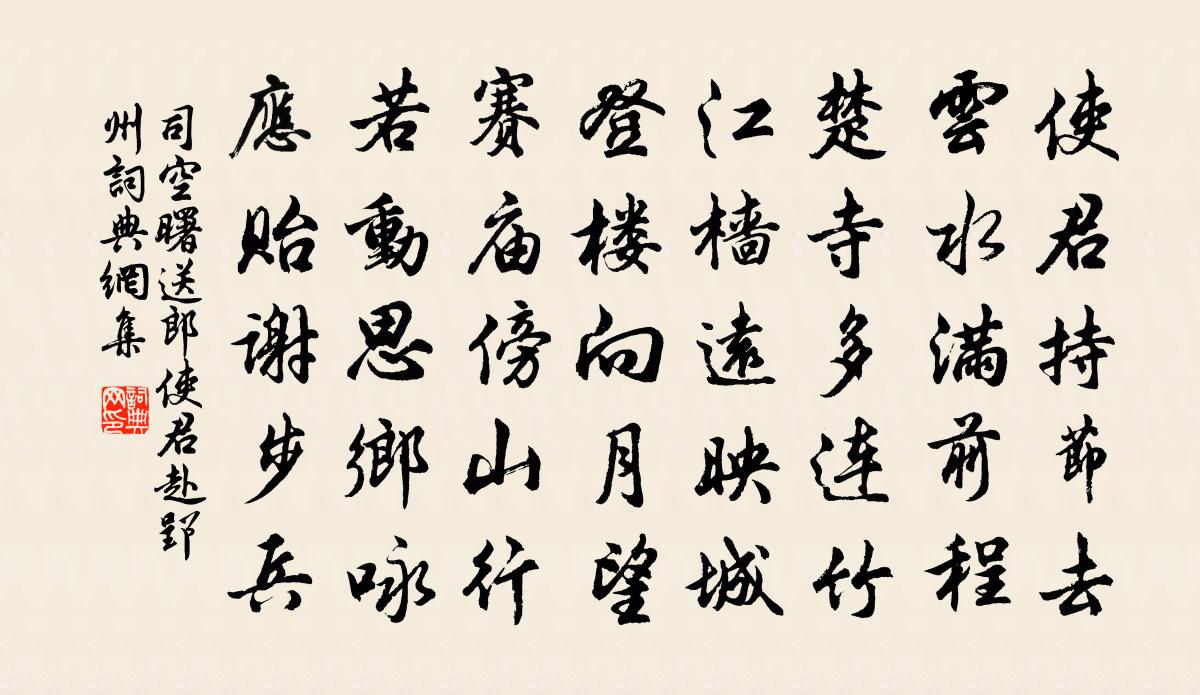 使君持節去
雲水滿前程
楚寺多连竹
江樯遠映城
登楼向月望
賽庙傍山行
若動思鄉咏
應貽謝步兵
司空曙送郎使君赴郢
州詞典網集
詞典网印